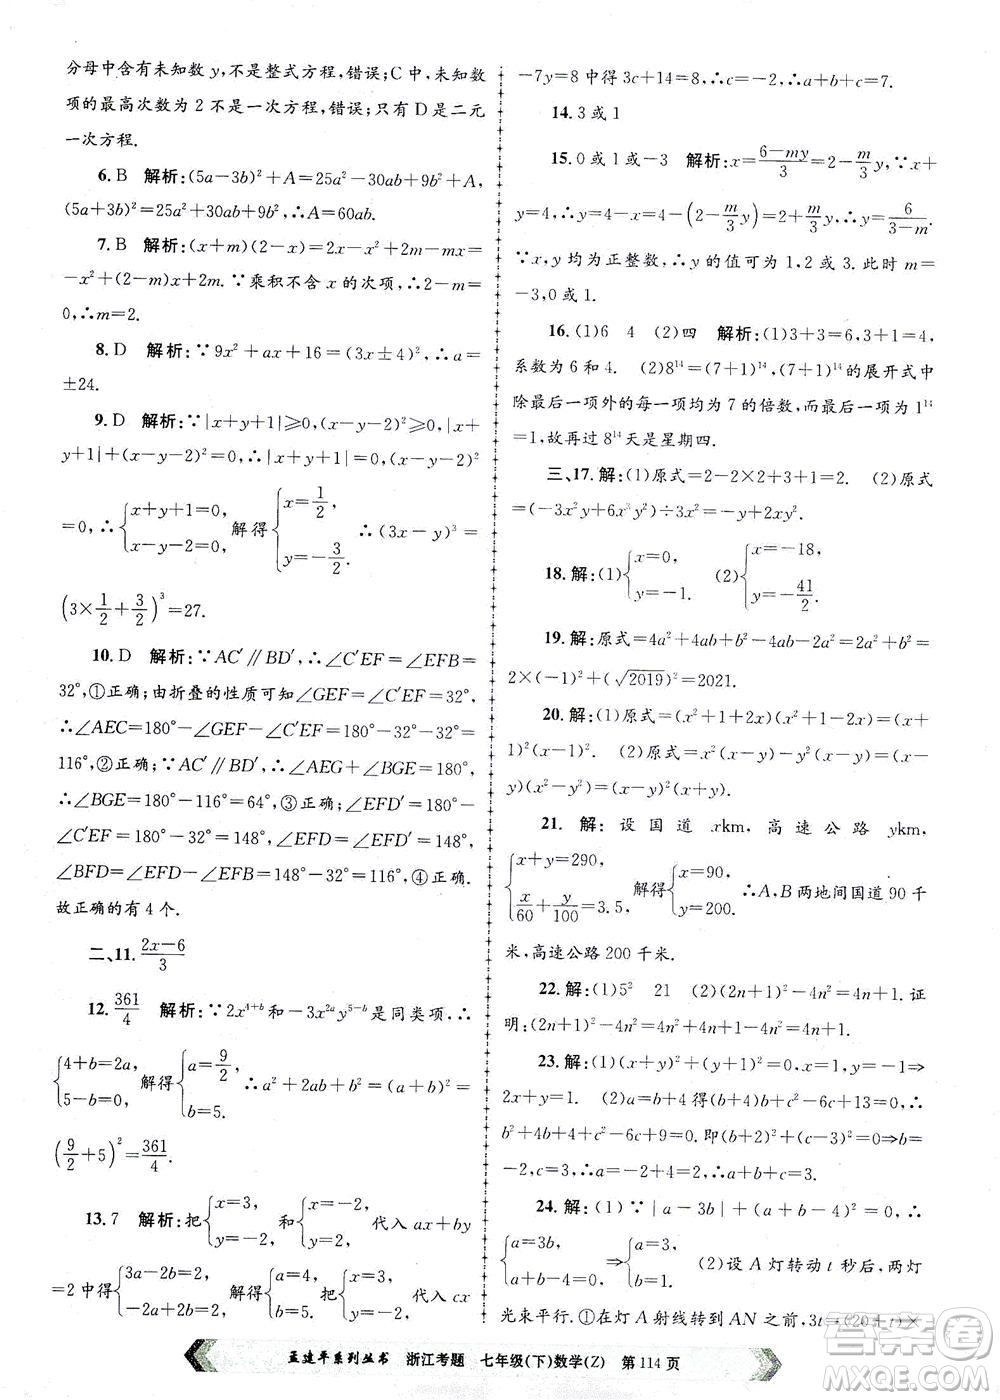 分母中含有未知数 y,不是整式方程,错误;C 中,未知数
项的最高次数为 2 不是一次方程,错误;只有 D 是二元
一次方程.
6. B 解析:(5a−3b)²+A=25a²−30ab+9b²+A=
(5a+3b)²=25a²+30ab+9b²,∴A=60ab.
7. B 解析:(x+m)(2−x)=2x−x²+2m−mx=
−x²+(2−m)x+2m.∵乘积不含 x 的次项,∴2−m=
0,∴m=2.
8. D 解析:∵9x²+ax+16=(3x±4)²,∴a=
±24.
9. D 解析:∵|x+y+1|≥0,(x−y−2)²≥0,|x+
y+1|+(x−y−2)²=0,∴|x+y+1|=0,(x−y−2)²
=0,∴{x+y+1=0, x−y−2=0. 解得{x=1/2, y=−3/2. ∴(3x−y)³=
(3×1/2+3/2)³=27.
10. D 解析:∵AC′∥BD′,∴∠C′EF=∠EFB=
32°,①正确;由折叠的性质可知∠GEF=∠C′EF=32°,
∴∠AEC=180°−∠GEF−∠C′EF=180°−32°−32°=
116°,②正确;∵AC′∥BD′,∴∠AEG+∠BGE=180°,
∴∠BGE=180°−116°=64°,③正确;∠EFD′=180°−
∠C′EF=180°−32°=148°,∠EFD=∠EFD′=148°,
∠BFD=∠EFD−∠EFB=148°−32°=116°,④正确.
故正确的有 4 个.
二、11. (2x−6)/3
12. 361/4 解析:∵2x⁴⁺ᵇ和−3x²ᵃy⁵⁻ᵇ是同类项,∴
{4+b=2a, 5−b=0. 解得{a=9/2, b=5. ∴a²+2ab+b²=(a+b)²=
(9/2+5)²=361/4.
13. 7 解析:把{x=3, y=−2 和{x=−2, y=2 代入 ax+by
=2 中得{3a−2b=2, −2a+2b=2. 解得{a=4, b=5. 把{x=3, y=−2 代入 cx
−7y=8 中得 3c+14=8,∴c=−2,∴a+b+c=7.
14. 3 或 1
15. 0 或 1 或−3 解析:x=(6−my)/3=2−(m/3)y,∵x+
y=4,∴x=4−y=4−(2−(m/3)y)=2+(m/3)y,∴y=6/(3−m).
∵x,y 均为正整数,∴y 的值可为 1,2 或 3.此时 m=
−3,0 或 1.
16. (1)6 4 (2)四 解析:(1)3+3=6,3+1=4,
系数为 6 和 4. (2)8¹⁴=(7+1)¹⁴,(7+1)¹⁴的展开式中
除最后一项外的每一项均为 7 的倍数,而最后一项 1¹⁴
=1,故再过 8¹⁴天是星期四.
三、17. 解:(1)原式=2−2−2×2+1+1=−2. (2)原式
=(−3x²yz+6x³yz²)÷3x²=−yz+2xyz².
18. 解:(1){x=0, y=−1. (2){x=−18, y=−41/2.
19. 解:原式=4a²+4ab+b²−4ab−2a²−b²+2=2a²+2=
2×(√2019)²+2=2021.
20. 解:(1)原式=(x²+1+2x)(x²+1−2x)=(x+
1)²(x−1)². (2)原式=x²(x−y)−y²(x−y)=(x−
y)(x²−y²)=(x−y)²(x+y).
21. 解:设国道 xkm,高速公路 ykm,
{x+y=290, x/60+y/100=3.5, 解得{x=90, y=200. ∴A,B 两地间国道 90 千
米,高速公路 200 千米.
22. 解:(1)5² 21 (2)(2n+1)²−4n²=4n+1.证
明:(2n+1)²−4n²=4n²+4n+1−4n²=4n+1.
23. 解:(1)(x+y)²+(x−1)²=0,x=1,y=−1,
2x+y=1. (2)由 a=b+4 得(b+4)b+c²−6c+13=0,∴
b²+4b+4+c²−6c+9=0.即(b+2)²+(c−3)²=0,∴b=
−2,c=3,∴a−4=−2,∴a=2,∴a+b+c=2−2+3=3.
24. 解:(1)∵|a−3b|+(a+b−4)²=0,∴
{a=3b, a+b−4=0 ⇒{a=3, b=1. (2)设 A 灯转动 t 秒后,两灯
光束平行.①在灯 A 射线转到 AN 之前,3t=(20+t)×
孟建平系列丛书 浙江考题 七年级(下)数学(Z) 第 114 页
答案圈
MXQE.COM